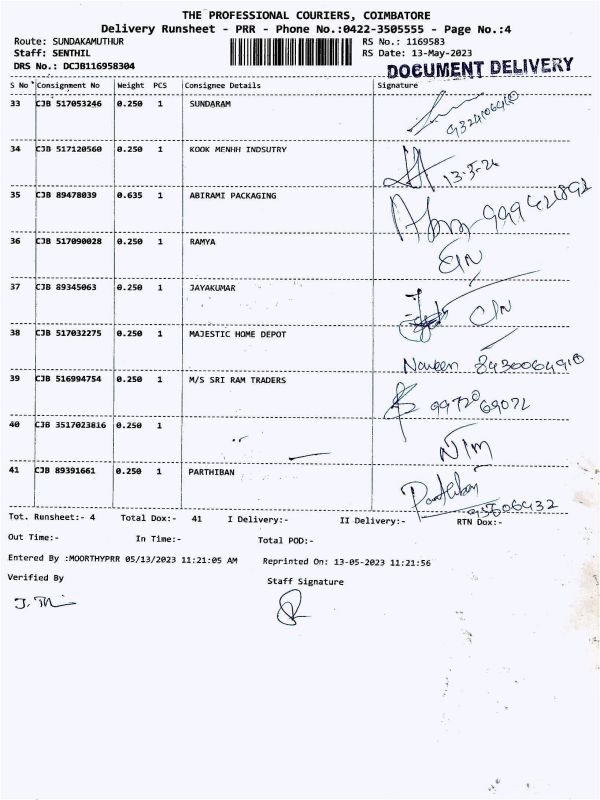 THE PROFESSIONAL COURIERS, COIMBATORE
Delivery Runsheet - PRR - Phone No.:0422-3505555 - Page No.:4
Route: SUNDAKAMUTHUR RS No.: 1169583
Staff: SENTHIL RS Date: 13-May-2023
DRS No.: DCJB116958304 DOCUMENT DELIVERY
S No Consignment No Weight PCS Consignee Details Signature
33 CJB 517053246 0.250 1 SUNDARAM
34 CJB 517120560 0.250 1 KOOK MENHH INDSUTRY
35 CJB 89478039 0.635 1 ABIRAMI PACKAGING
36 CJB 517090028 0.250 1 RAMYA
37 CJB 89345063 0.250 1 JAYAKUMAR
38 CJB 517032275 0.250 1 MAJESTIC HOME DEPOT
Naveen
39 CJB 516994754 0.250 1 M/S SRI RAM TRADERS
40 CJB 3517023816 0.250 1
41 CJB 89391661 0.250 1 PARTHIBAN
Parthiban
Tot. Runsheet:- 4 Total Dox:- 41 I Delivery:- II Delivery:- RTN Dox:-
Out Time:- In Time:- Total POD:-
Entered By :MOORTHYPRR 05/13/2023 11:21:05 AM Reprinted On: 13-05-2023 11:21:56
Verified By Staff Signature